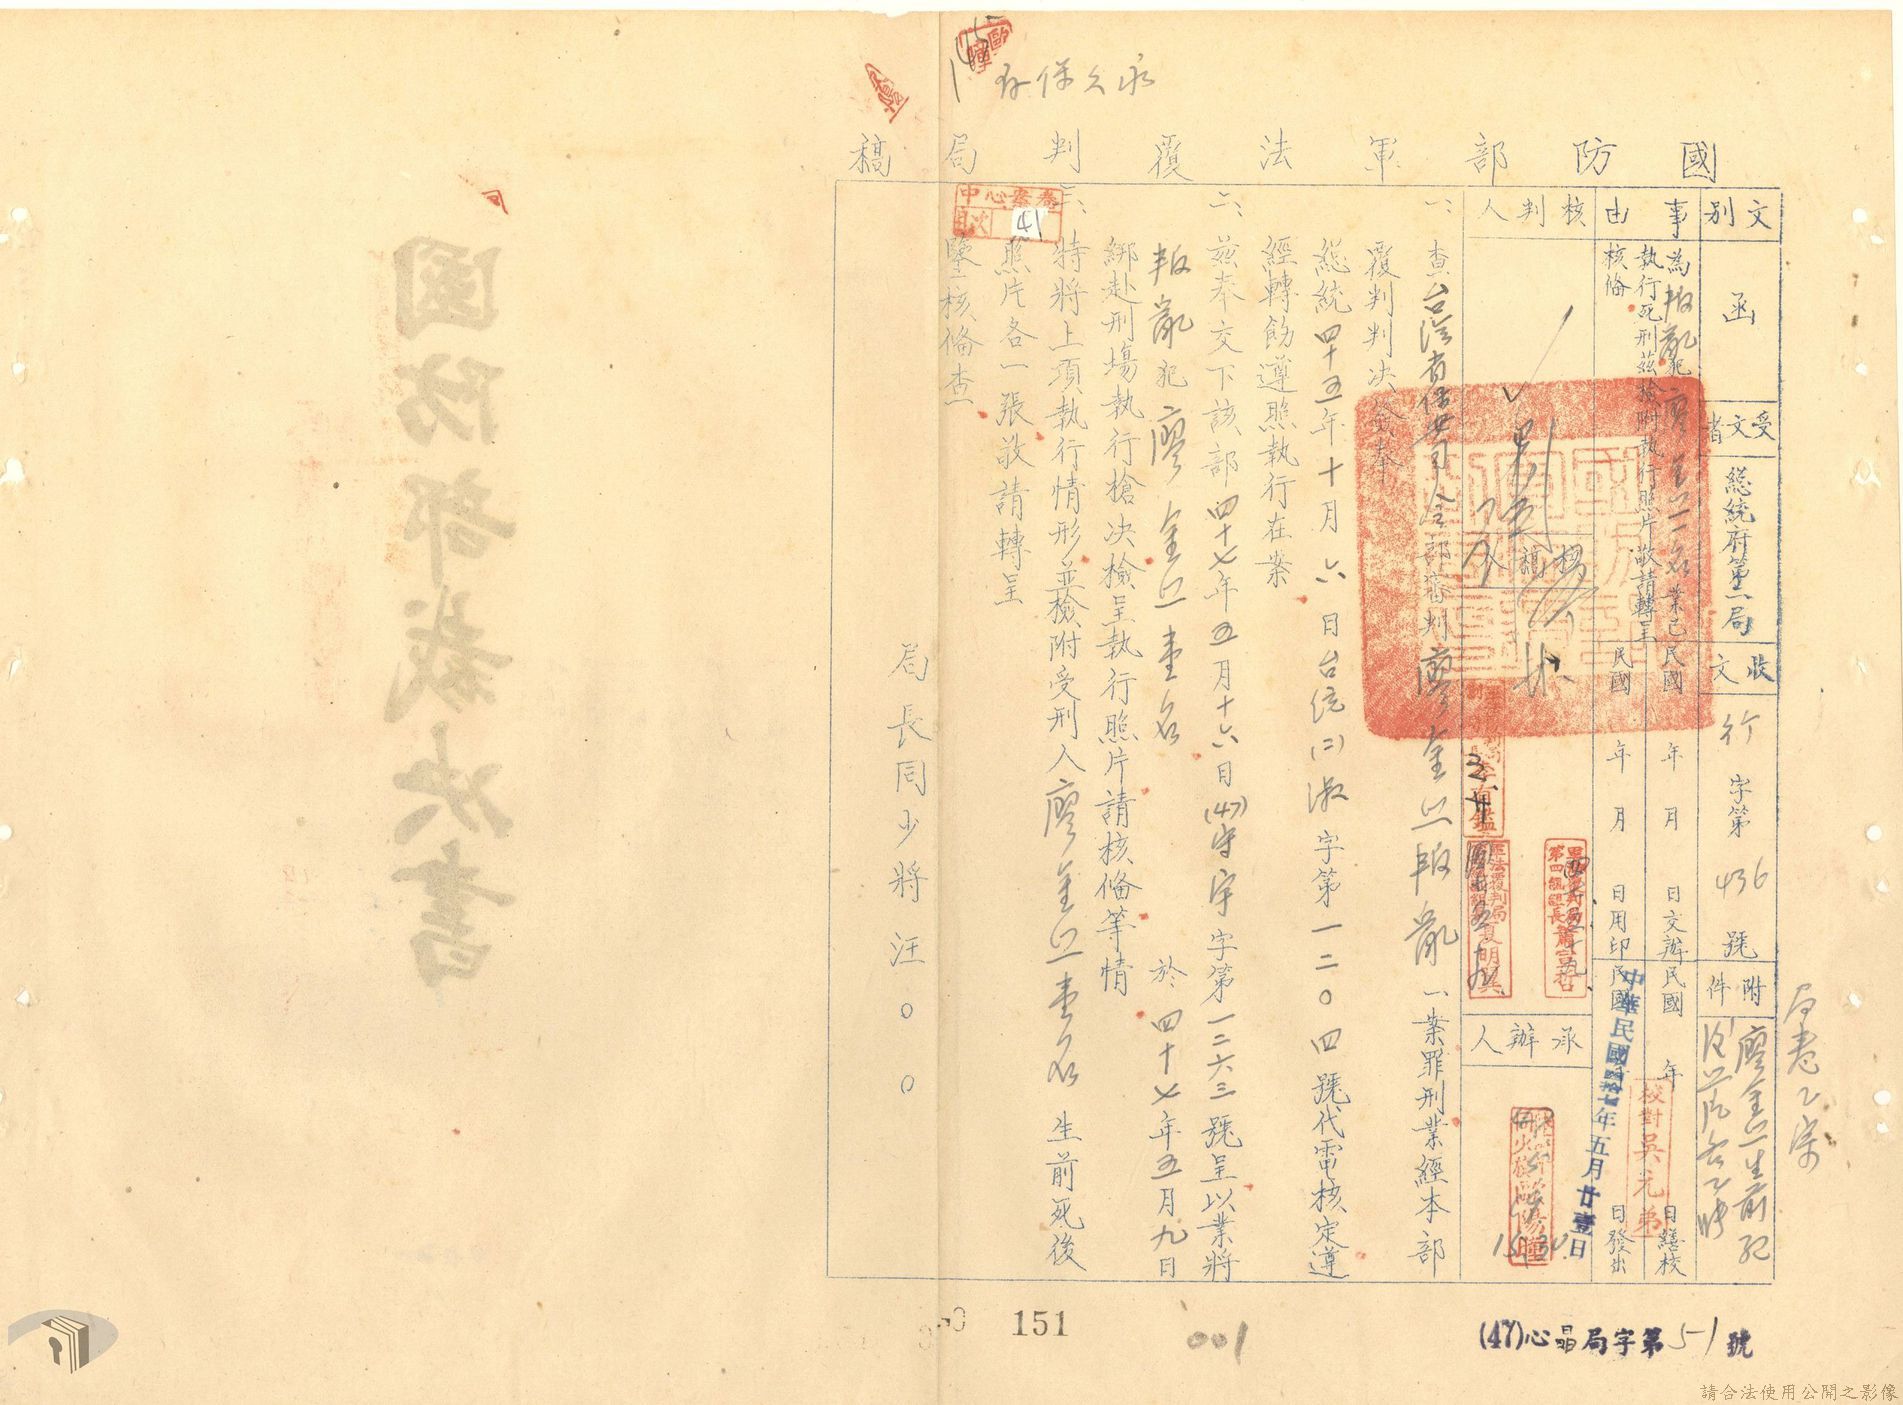 永久保存
國防部軍法覆判局稿
文別
函
受文者
總統府第二局
收文
行字第436號
附件
廖金照生前死
後照片各乙帧
事由
為叛亂犯廖金照一名業已
執行死刑茲檢附執行照片敬請轉呈
核備
民國 年 月 日交辦
民國 年 月 日繕校
民國 年 月 日用印
民國 年 月 日發出
中華民國四十七年五月廿壹日
校對吳元弟
核判人
核稿人
承辦人
一、查台灣省保安司令部審判廖金照叛亂一案罪刑業經本部
覆判判決簽奉
總統四十五年十月六日台統(二)淑字第一二〇四號代電核定遵
經轉飭遵照執行在案
二、茲奉交下該部四十七年五月十六日(47)守宇字第一二六三號呈以業將
叛亂犯廖金照壹名於四十七年五月九日
綁赴刑場執行槍決檢呈執行照片請核備等情
三、特將上項執行情形並檢附受刑人廖金照壹名生前死後
照片各一張敬請轉呈
鑒核備查
局長同少將汪〇〇
中心案卷
目次
41
國防部裁決書
151
001
(47)心晶局字第51號
請合法使用公開之影像